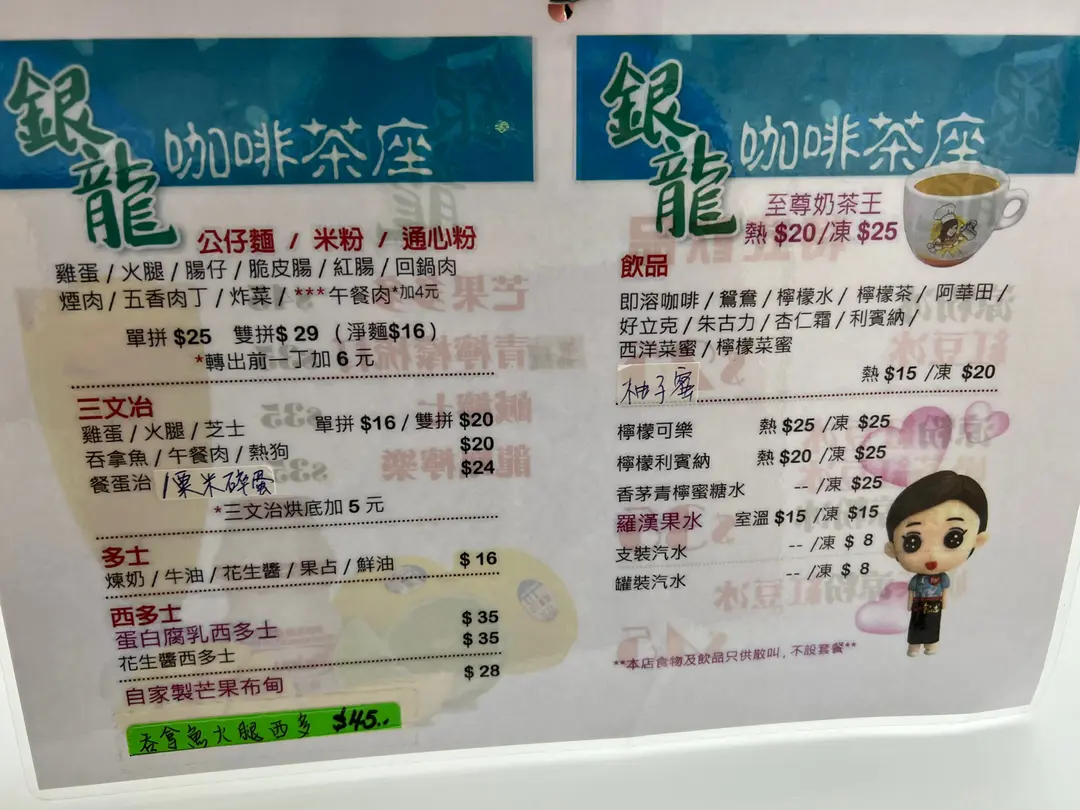 銀龍 咖啡茶座
公仔麵 / 米粉 / 通心粉
雞蛋 / 火腿 / 腸仔 / 脆皮腸 / 紅腸 / 回鍋肉
煙肉 / 五香肉丁 / 炸菜 / ***午餐肉*加4元
單拼 $25 雙拼$ 29 (淨麵$16)
*轉出前一丁加 6 元
三文冶
雞蛋 / 火腿 / 芝士 單拼 $16 / 雙拼 $20
吞拿魚 / 午餐肉 / 熱狗 $20
餐蛋治 / 粟米碎蛋 $24
*三文治烘底加 5 元
多士
煉奶 / 牛油 / 花生醬 / 果占 / 鮮油 $ 16
西多士 $ 35
蛋白腐乳西多士 $ 35
花生醬西多士
自家製芒果布甸 $ 28
吞拿魚火腿西多 $45..
銀龍 咖啡茶座
至尊奶茶王
熱 $20/凍 $25
飲品
即溶咖啡 / 鴛鴦 / 檸檬水 / 檸檬茶 / 阿華田 /
好立克 / 朱古力 / 杏仁霜 / 利賓納 /
西洋菜蜜 / 檸檬菜蜜
柚子蜜 熱 $15 /凍 $20
檸檬可樂 熱 $25 /凍 $25
檸檬利賓納 熱 $20 /凍 $25
香茅青檸蜜糖水 -- /凍 $25
羅漢果水 室溫 $15 /凍 $15
支裝汽水 -- /凍 $ 8
罐裝汽水 -- /凍 $ 8
**本店食物及飲品只供散叫，不設套餐**